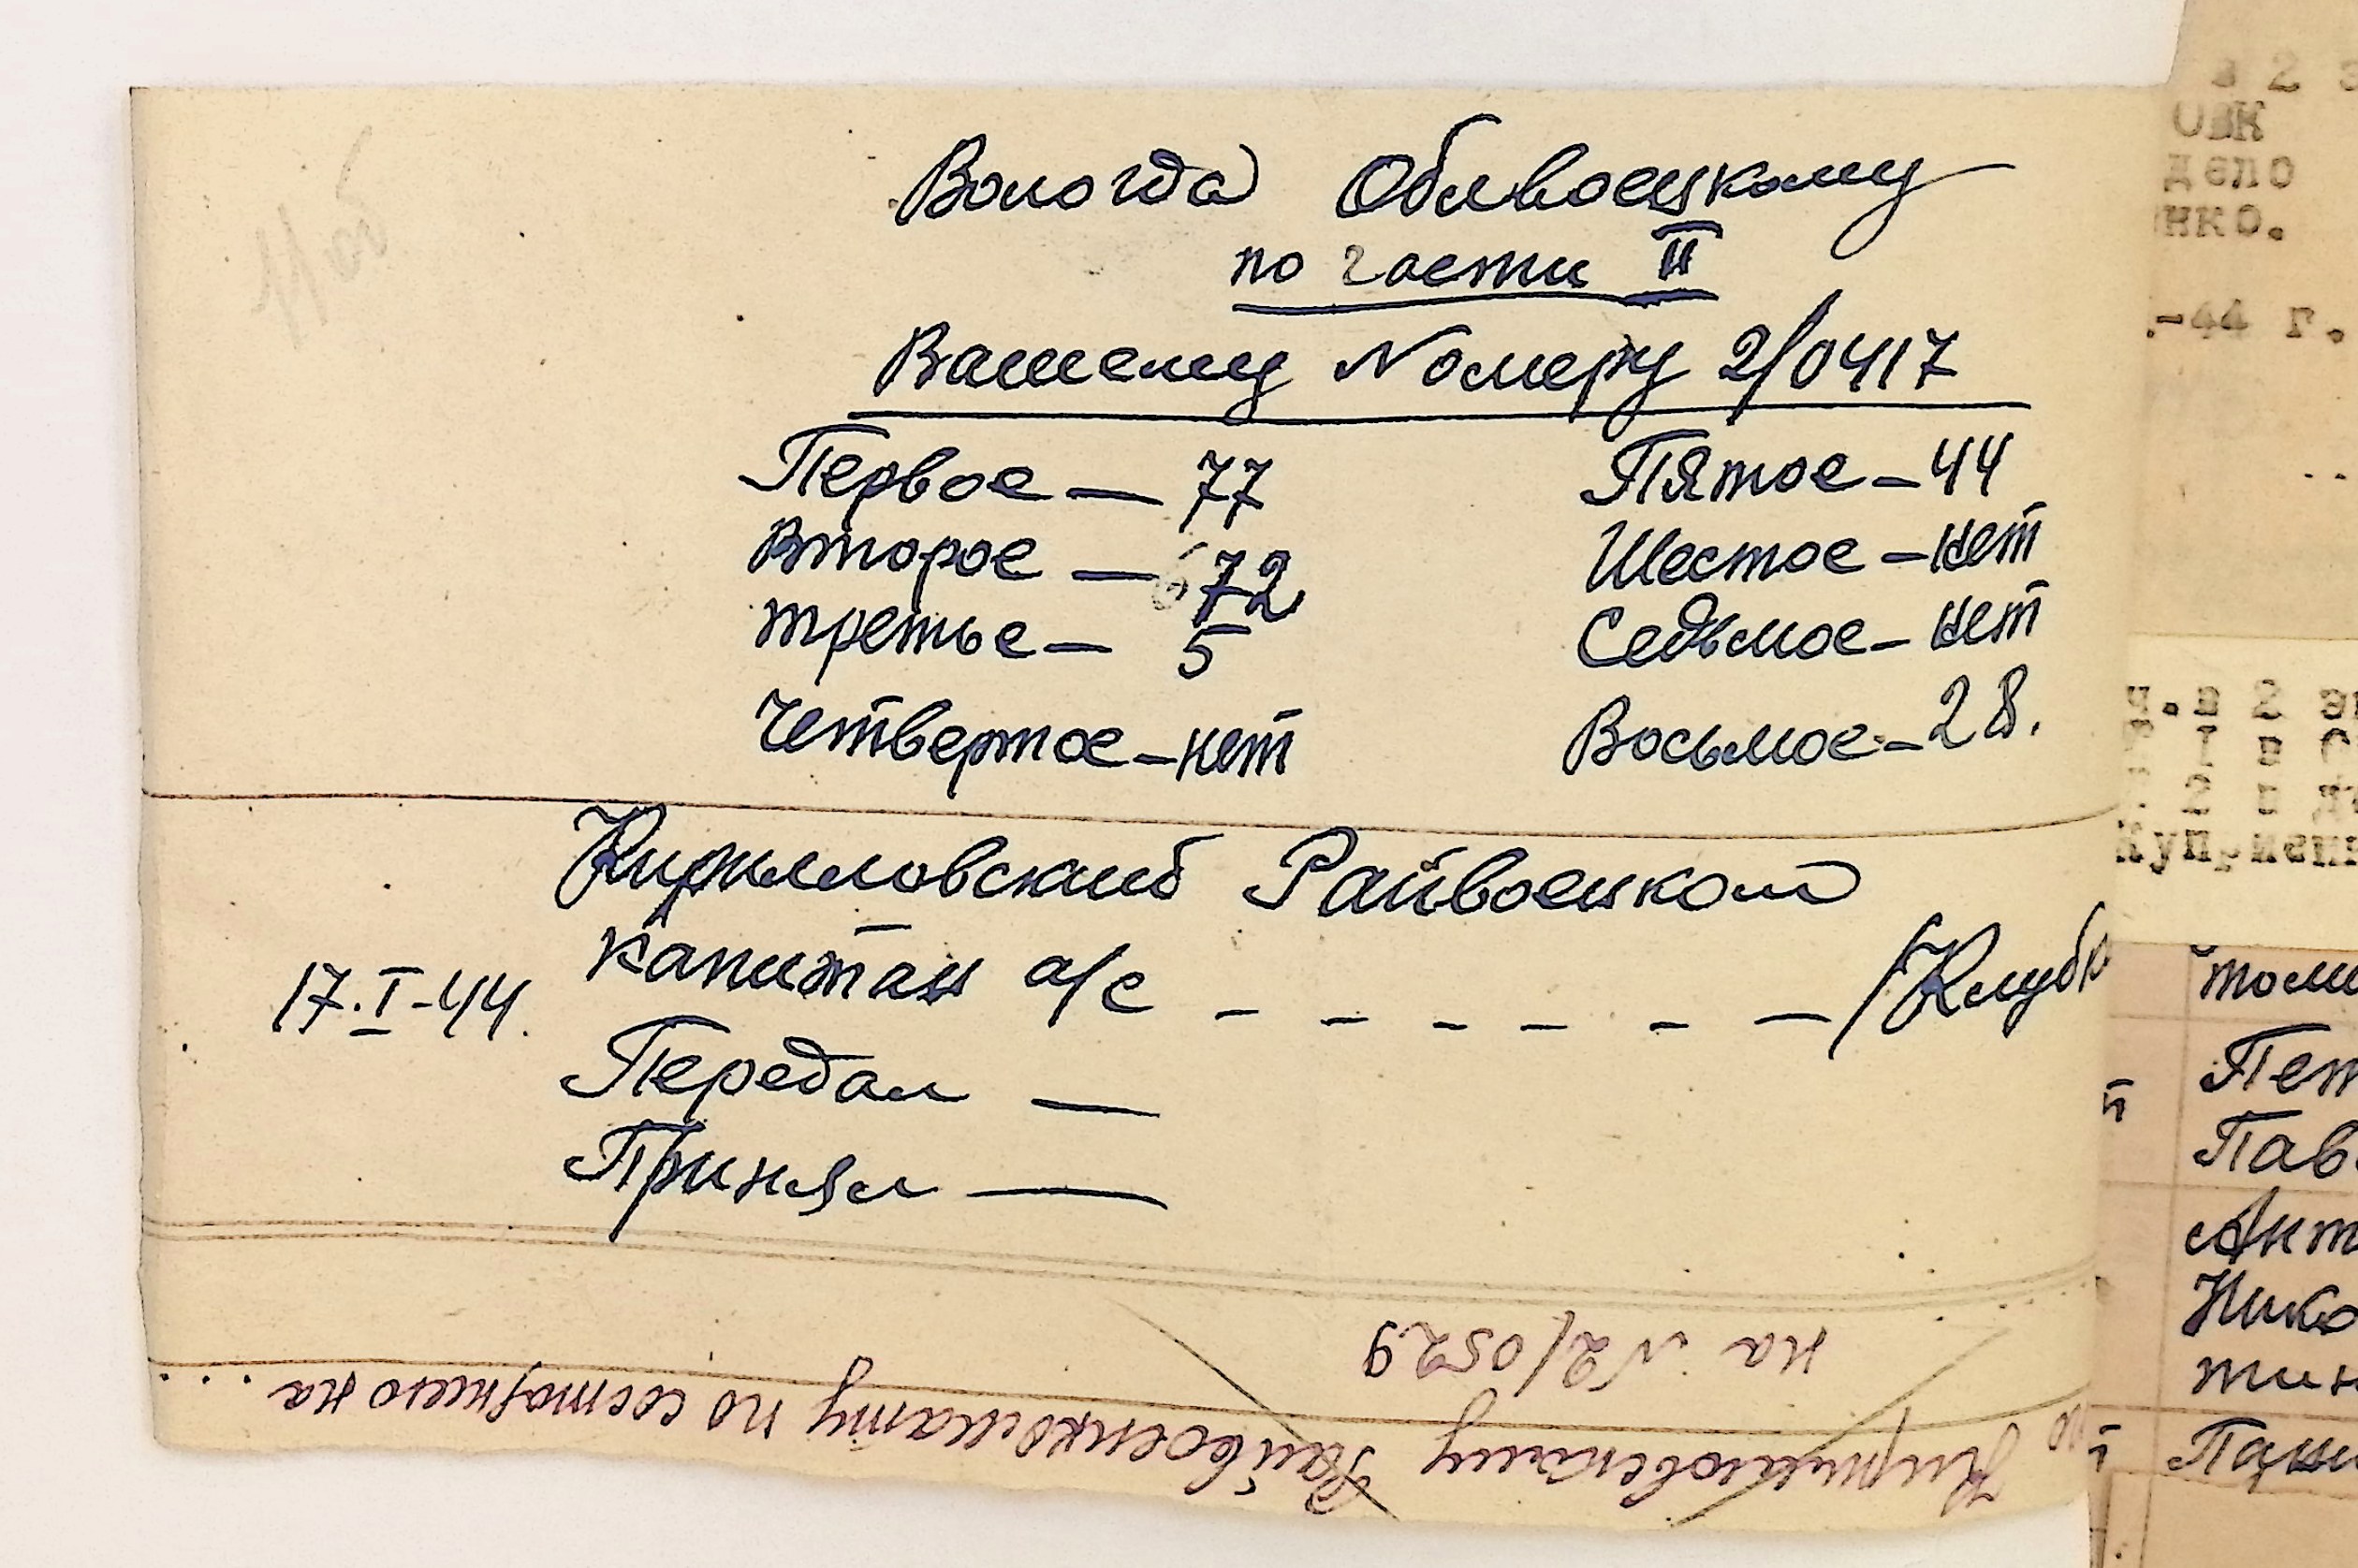 Вологда Облвоенкому
по части II
Вашему Номеру 2/0417
Первое — 77
Второе — 72
третье — 5
Четвертое — нет
Пятое — 44
Шестое — нет
Седьмое — нет
Восьмое — 28.
Кирилловский Райвоенком
капитан а/с — — — — — — /Клуб
17.I-44.
Передал —
Принял —
на №2/0529
Кирилловскому Райвоенкомату по состоянию на ...
дело
нко.
-44 г.
Пет
Пав
Ант
Нико